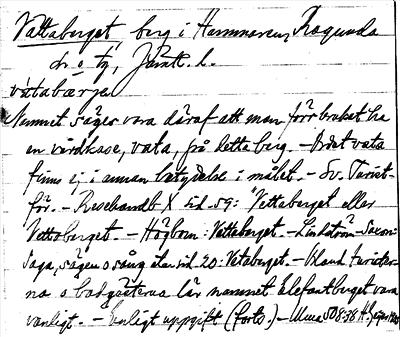 Vättaberget berg i Hammaren, Ragunda
sn o tg, Jämtl. l.
våtabærje
Namnet säges vara däraf att man förr brukat ha
en vårdkase, vata, på detta berg. – Ordet vata
finns ej i annan betydelse i målet. – Sv. Turist-
för. – Resehandb X sid 59: Vettaberget eller
Vettoberget. – Högbom: Vettaberget. – Lindström-Saxon:
Saga, sägen o sång sid. 20: Vetaberget. – Bland turister-
na o badgästerna lär namnet Elefantberget vara
vanligt. – Enligt uppgift (forts.) –